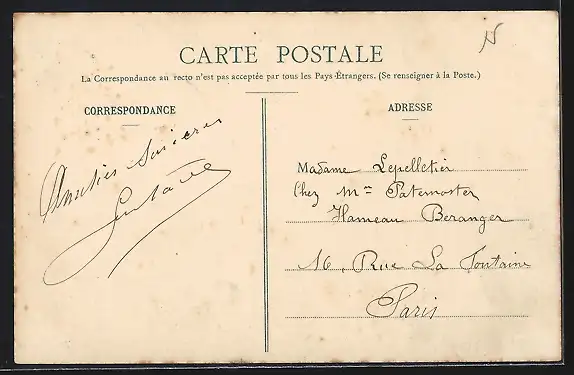 CARTE POSTALE
La Correspondance au recto n'est pas acceptée par tous les Pays-Étrangers. (Se renseigner à la Poste.)
CORRESPONDANCE
Amitiés Sincères
Gustave
ADRESSE
Madame Lepelletier
Chez Mme Paternoster
Hameau Beranger
16, Rue La Fontaine
Paris